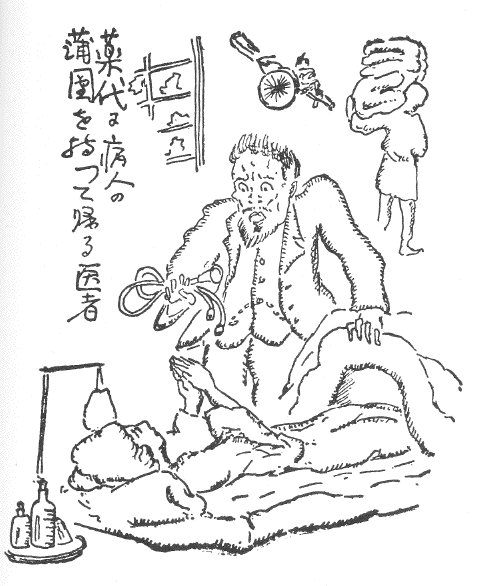 薬代に病人の
蒲団を持つて帰る医者